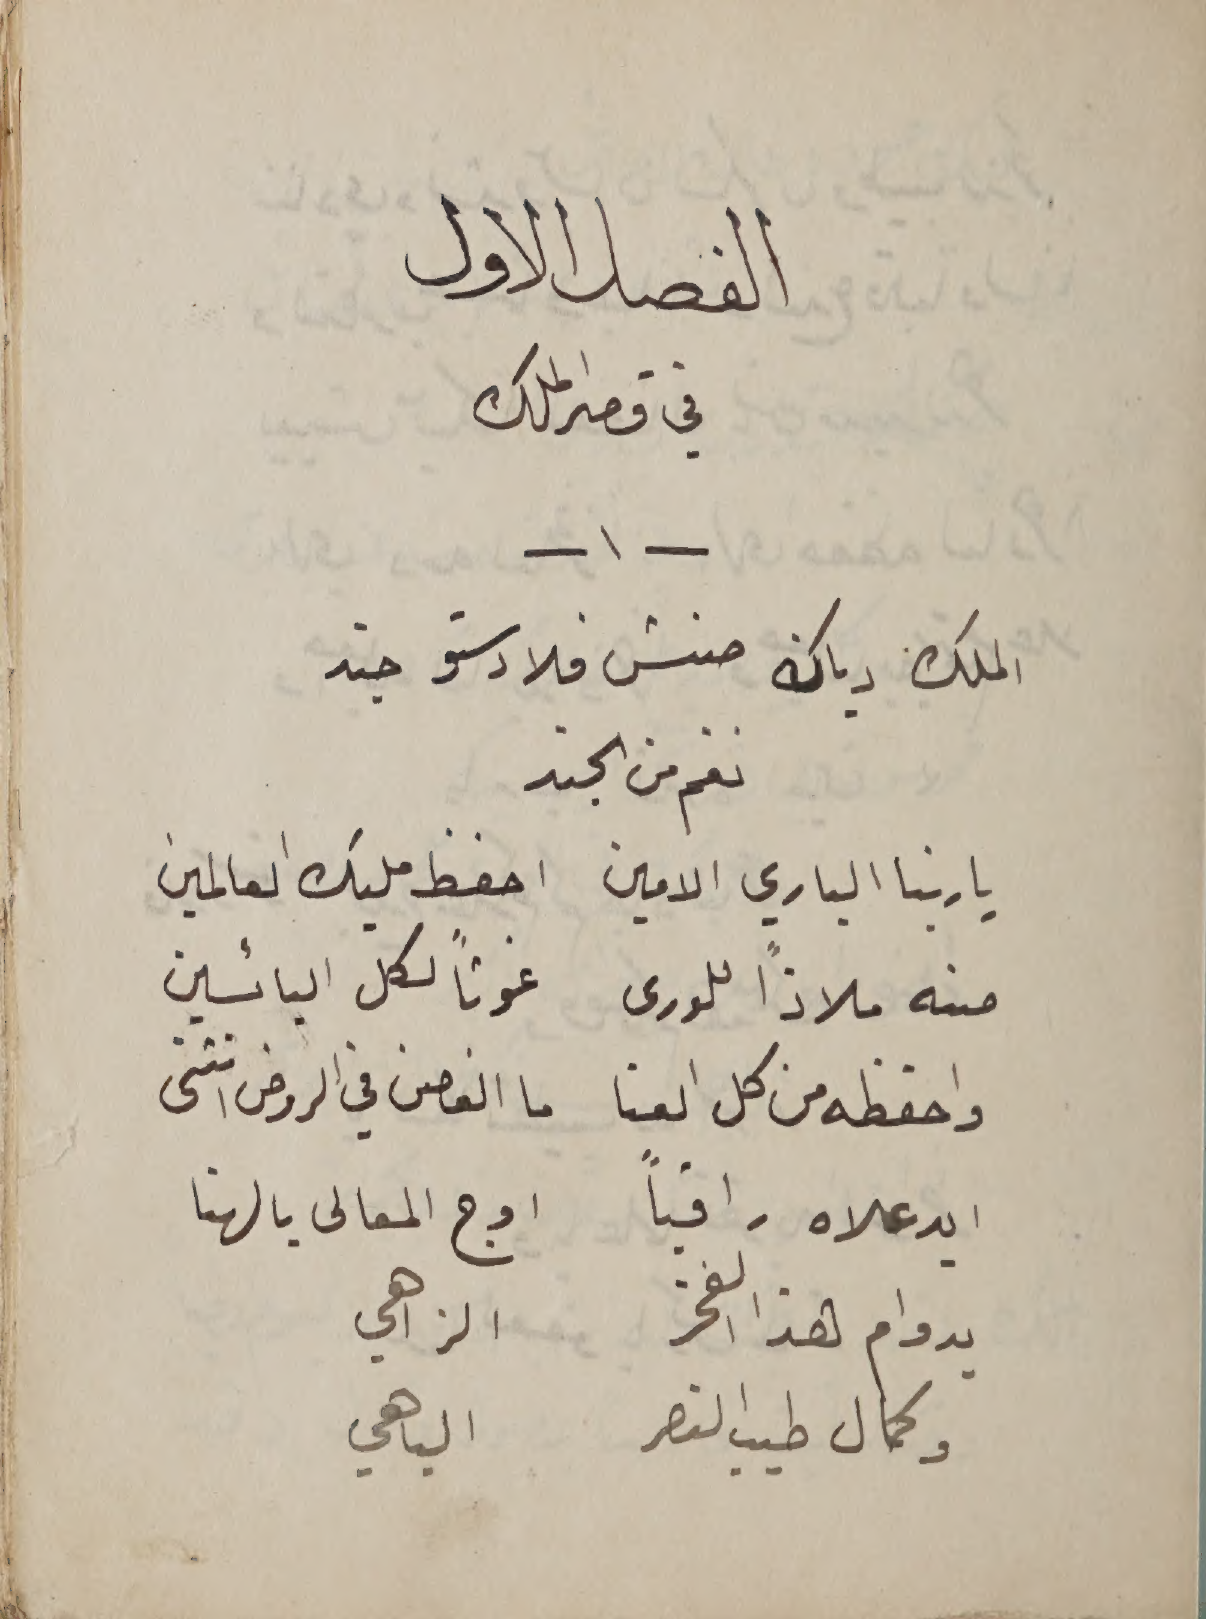 الفصل الاول
في قصر الملك
— ١ —
الملك دياكن منش فلادستو جند
نغم من الجند
يا ربنا الباري الامين احفظ مليك العالمين
منه ملاذاً للورى غوثاً لكل البائسين
واحفظه من كل العنا ما الغصن في الروض انثنى
ايد علاه راقياً اوج المعالى بالهنا
بدوام هذا الفخر الزاهي
وكمال طيب النصر الباهي